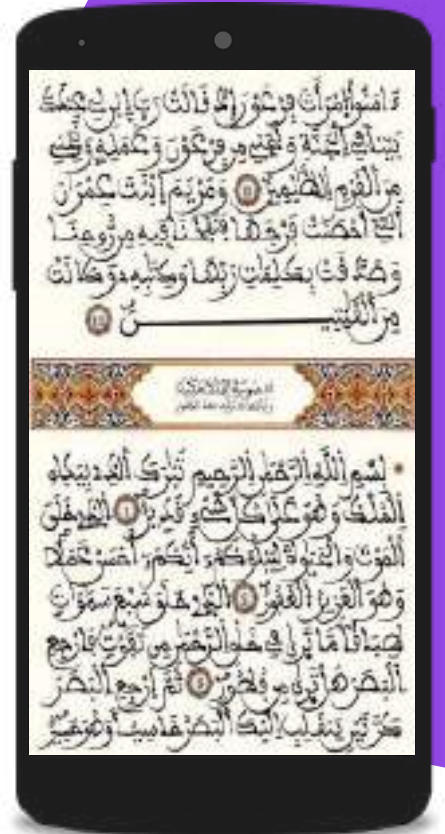 ءامنوا امرأت فرعون إذ قالت رب ابن لي عندك
بيتا في الجنة ونجني من فرعون وعمله ونجني
من القوم الظلمين ١١ ومريم ابنت عمران
التي أحصنت فرجها فنفخنا فيه من روحنا
وصدقت بكلمت ربها وكتبه وكانت
من القنتين ١٢
سورة الملك مكية
بسم الله الرحمن الرحيم تبرك الذي بيده
الملك وهو على كل شيء قدير ١ الذي خلق
الموت والحيوة ليبلوكم أيكم أحسن عملا
وهو العزيز الغفور ٢ الذي خلق سبع سموت
طباقا ما ترى في خلق الرحمن من تفوت فارجع
البصر هل ترى من فطور ٣ ثم ارجع البصر
كرتين ينقلب إليك البصر خاسئا وهو حسير